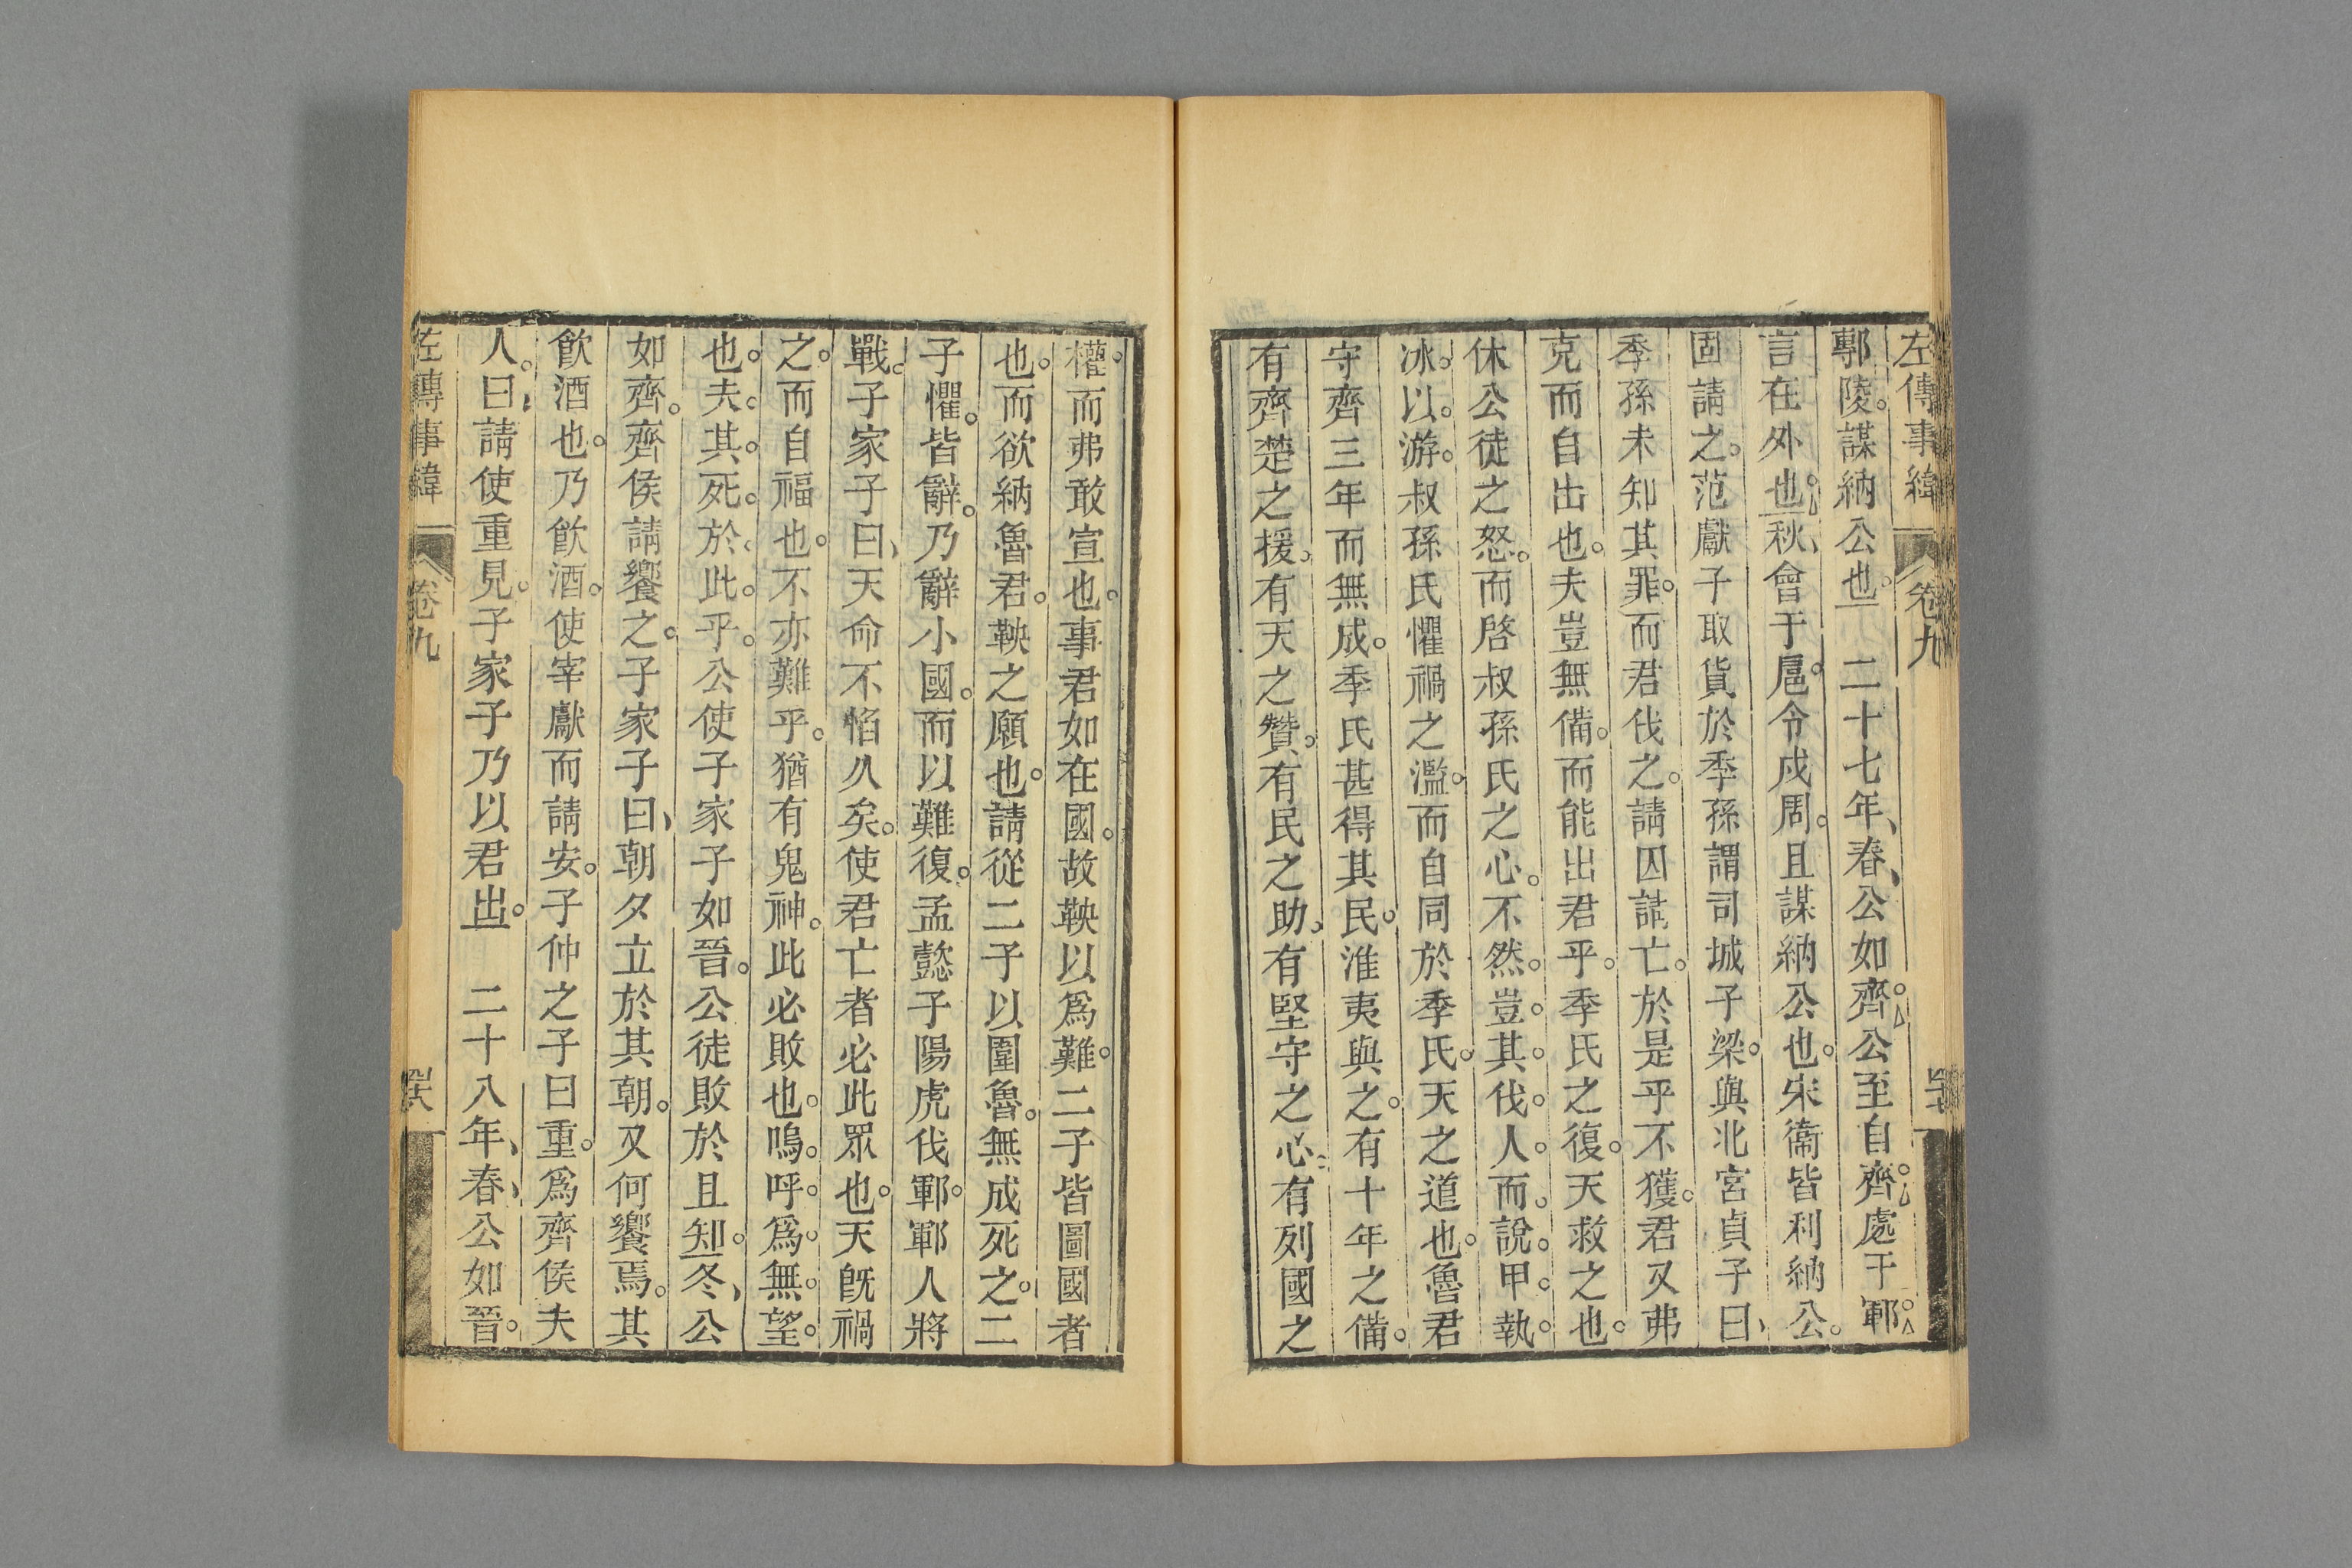 左傳事緯 卷九
鄟陵謀納公也 二十七年春公如齊公至自齊處于鄆
言在外也秋會于扈令戍周且謀納公也宋衞皆利納公
固請之范獻子取貨於季孫謂司城子梁與北宮貞子曰
季孫未知其罪而君伐之請囚請亡於是乎不獲君又弗
克而自出也夫豈無備而能出君乎季氏之復天救之也
休公徒之怒而啓叔孫氏之心不然豈其伐人而說甲執
冰以游叔孫氏懼禍之濫而自同於季氏天之道也魯君
守齊三年而無成季氏甚得其民淮夷與之有十年之備
有齊楚之援有天之贊有民之助有堅守之心有列國之
權而弗敢宣也事君如在國故鞅以爲難二子皆圖國者
也而欲納魯君鞅之願也請從二子以圍魯無成死之二
子懼皆辭乃辭小國而以難復孟懿子陽虎伐鄆鄆人將
戰子家子曰天命不慆久矣使君亡者必此眾也天旣禍
之而自福也不亦難乎猶有鬼神此必敗也嗚呼爲無望
也夫其死於此乎公使子家子如晉公徒敗於且知冬公
如齊齊侯請饗之子家子曰朝夕立於其朝又何饗焉其
飮酒也乃飮酒使宰獻而請安子仲之子曰重爲齊侯夫
人曰請使重見子家子乃以君出 二十八年春公如晉
左傳事緯 卷九